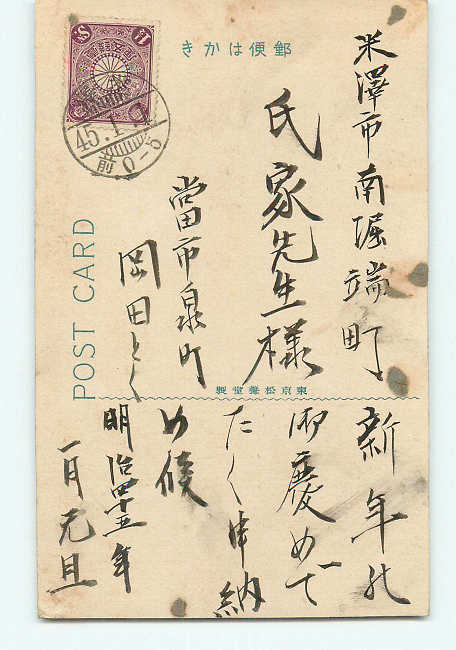 郵便はかき
米澤市南堀端町
氏家先生様
當市泉町
岡田とく
POST CARD
45.1.1
前0-5
東京松聲堂製
新年の
御慶めで
たく申納
め候
明治四十五年
一月元旦